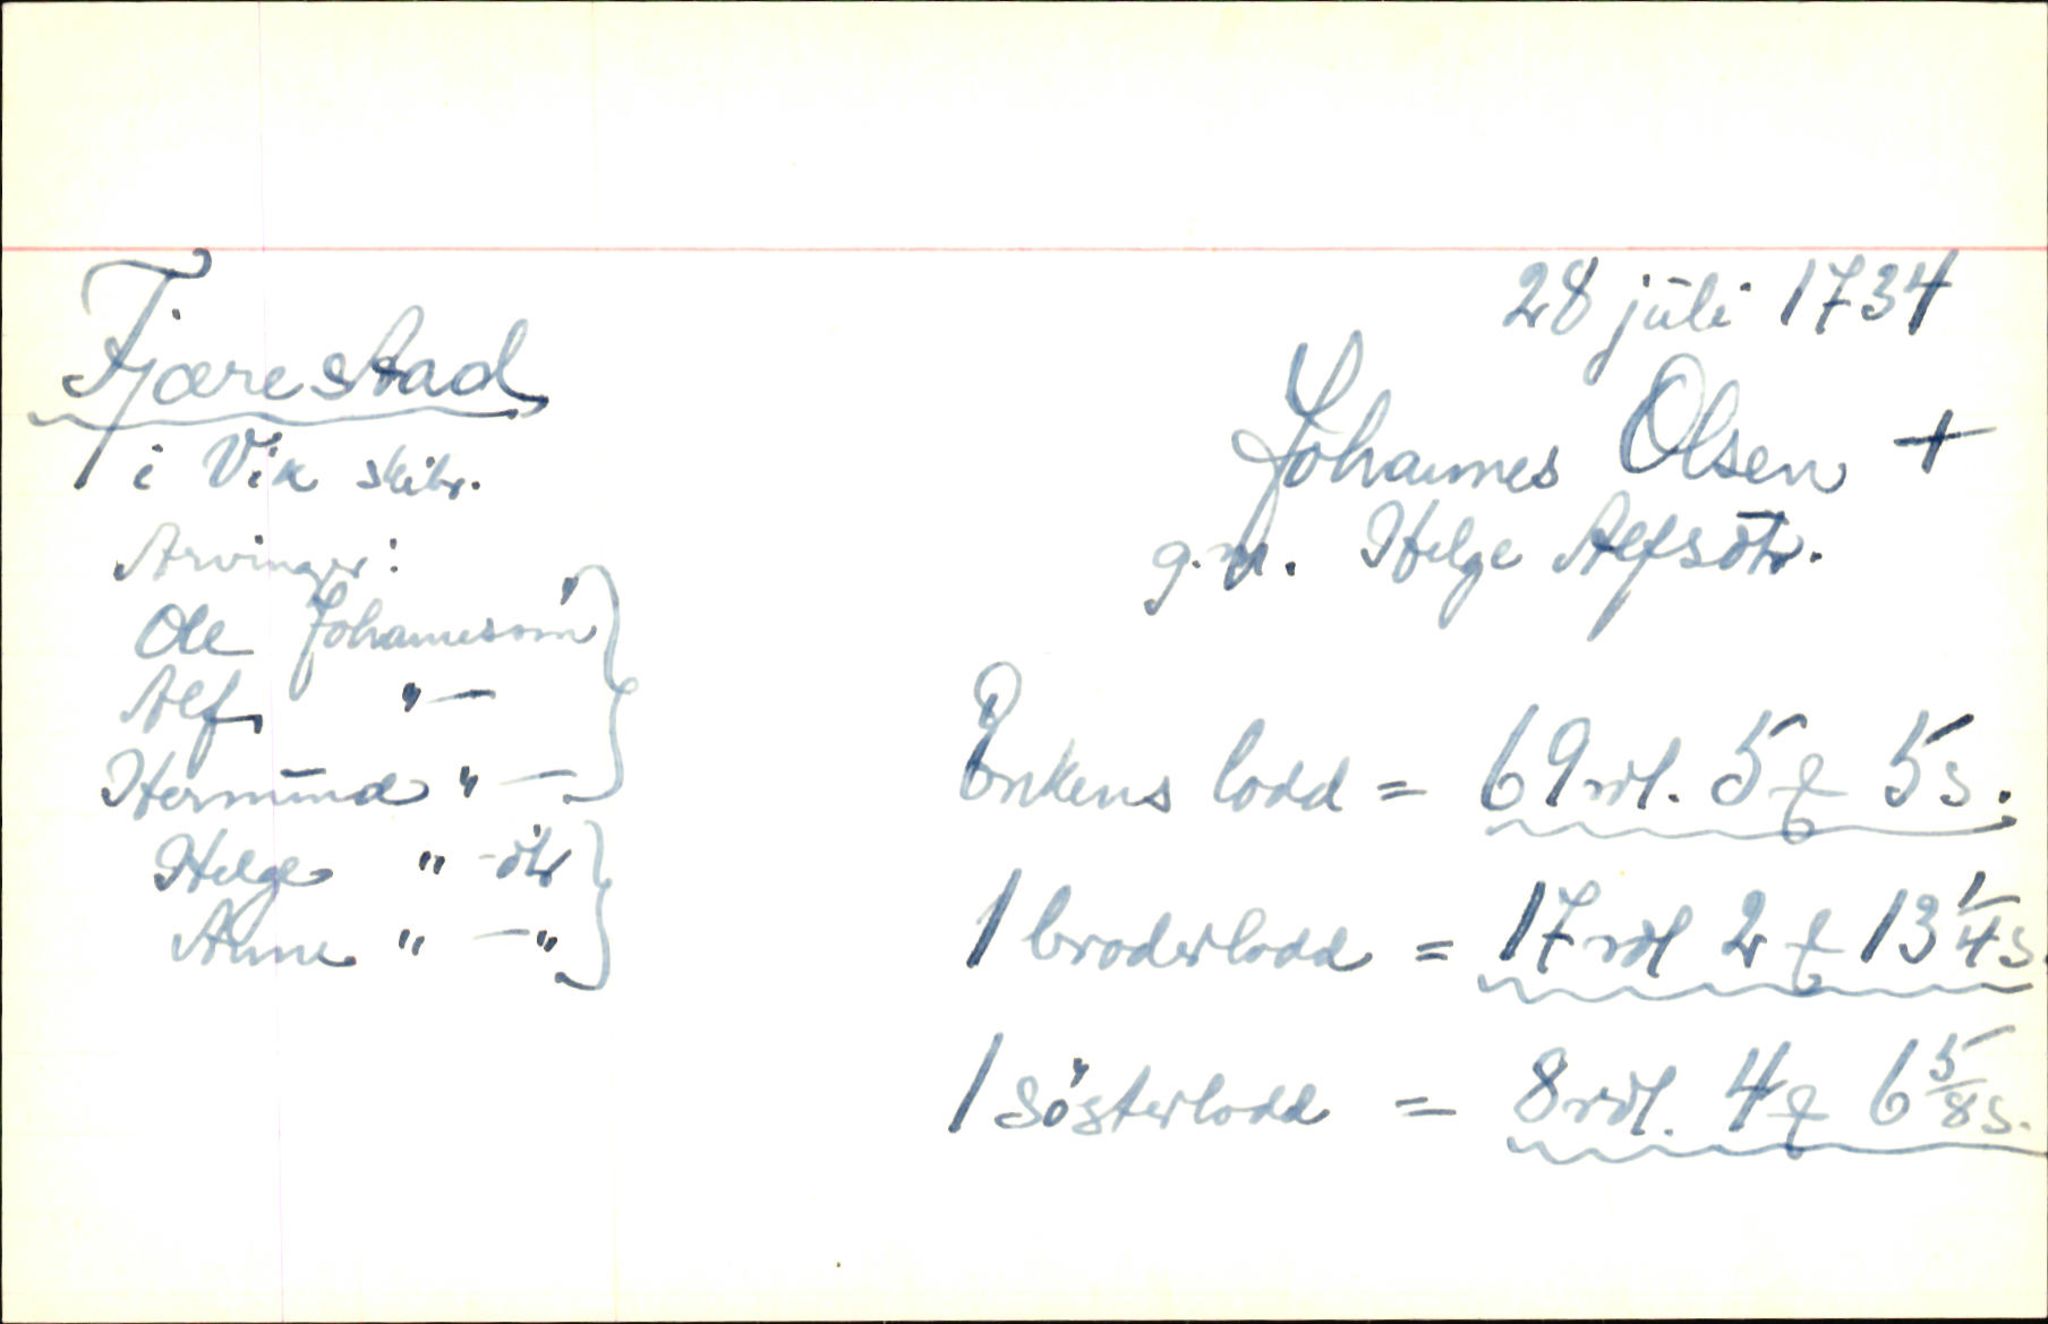 28 juli 1734
Fjærestad
i Vik skibr.
Johannes Olsen +
g.m. Helge Alfsdtr.
Arvinger:
Ole Johannesøn
Alf " —
Hermund " —
Helge " -dtr
Anne " — "
Enkens lodd = 69 rdl. 5 ℔ 5 s.
1 broderlodd = 17 rdl 2 ℔ 13 1/4 s.
1 søsterlodd = 8 rdl. 4 ℔ 6 5/8 s.